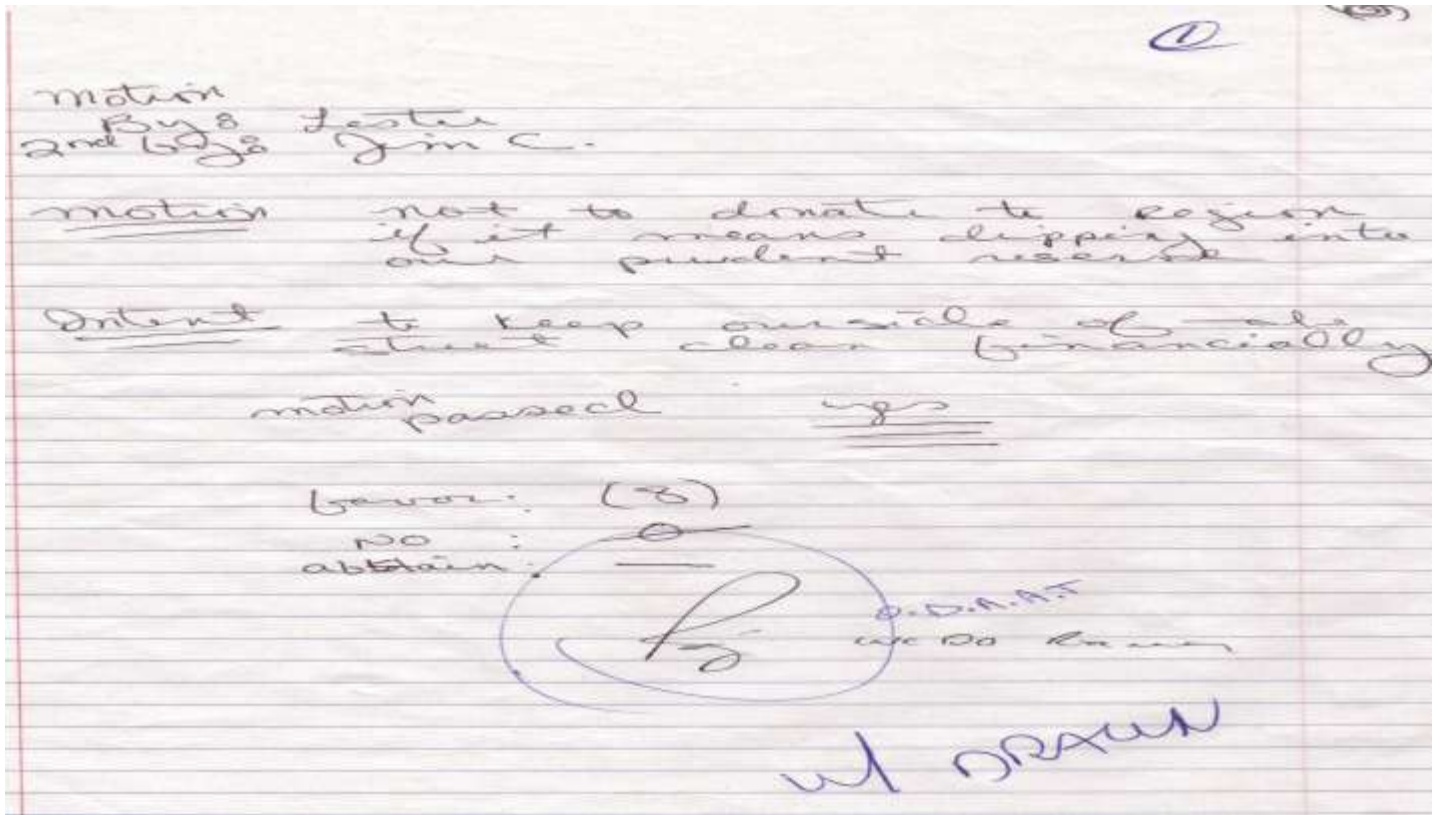 ①
motion
By: Lester
2nd by: Jim C.
motion not to donate to region
if it means dipping into
our prudent reserve
Intent to keep our side of the
street clean financially
motion
passed yes
favor: (8)
NO : 0
abstain: —
O.D.A.A.T
we Do
w/ DRAWN